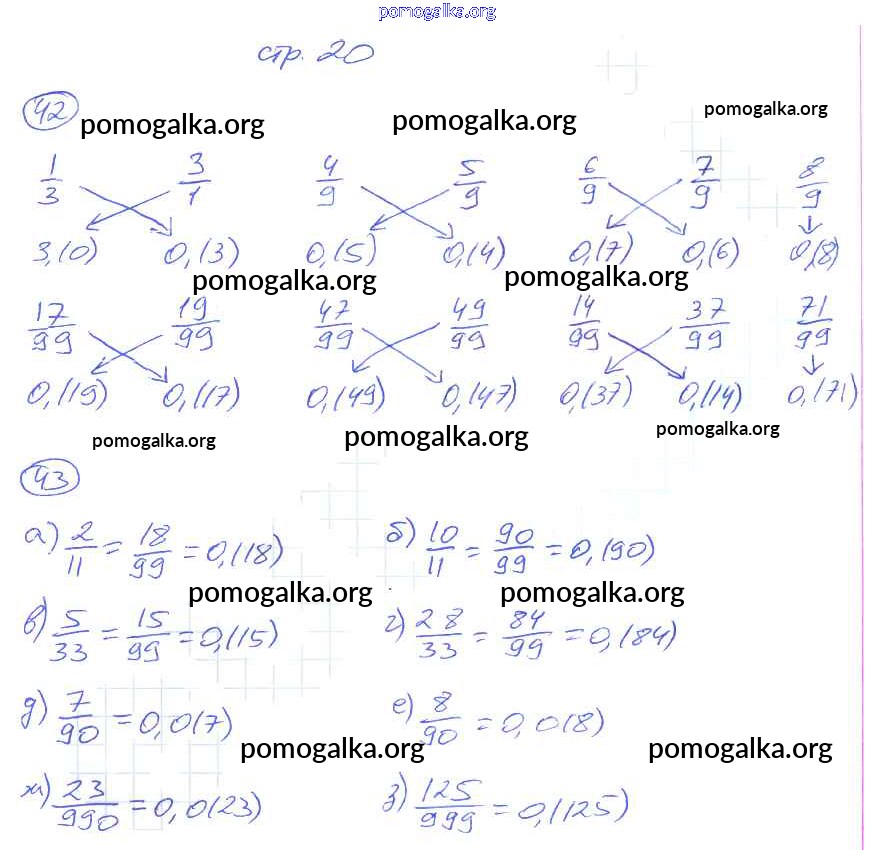 pomogalka.org
стр. 20
42
pomogalka.org pomogalka.org pomogalka.org
1/3 3/1 4/9 5/9 6/9 7/9 8/9
3,(0) 0,(3) 0,(5) 0,(4) 0,(7) 0,(6) 0,(8)
pomogalka.org pomogalka.org
17/99 19/99 47/99 49/99 14/99 37/99 71/99
0,(19) 0,(17) 0,(49) 0,(47) 0,(37) 0,(14) 0,(71)
pomogalka.org pomogalka.org pomogalka.org
43
а) 2/11 = 18/99 = 0,(18) б) 10/11 = 90/99 = 0,(90)
pomogalka.org pomogalka.org
в) 5/33 = 15/99 = 0,(15) г) 28/33 = 84/99 = 0,(84)
д) 7/90 = 0,0(7) е) 8/90 = 0,0(8)
pomogalka.org pomogalka.org
ж) 23/990 = 0,0(23) з) 125/999 = 0,(125)